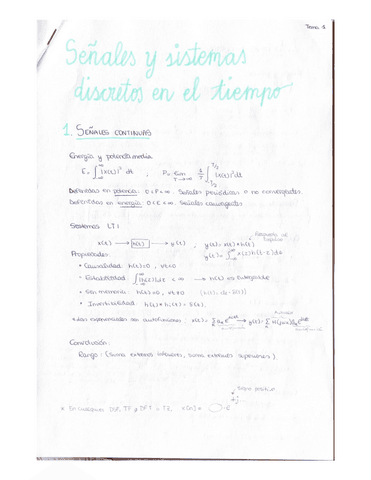 Tema 1
Señales y sistemas
discretos en el tiempo
1. SEÑALES CONTINUAS
Energía y potencia media
E = ∫_{-∞}^{∞} |x(t)|² dt , P = lim_{T→∞} 1/T ∫_{-T/2}^{T/2} |x(t)|² dt
Definidas en potencia: 0<P<∞. Señales periódicas o no convergentes.
Definidas en energía: 0<E<∞. Señales convergentes
Sistemas LTI
Respuesta al impulso
x(t) → h(t) → y(t) , y(t) = x(t) * h(t)
Propiedades:
• Causalidad: h(t)=0, ∀t<0
• Estabilidad: ∫_{-∞}^{∞} |h(t)| dt < ∞ → h(t) es integrable
• Sin memoria: h(t)=0, ∀t≠0
• Invertibilidad: h(t) * hᵢ(t) = δ(t).
Las exponenciales son autofunciones
Convolución:
Rango: (Suma extremos inferiores, Suma extremos superiores).
Signo positivo
* En cualquier